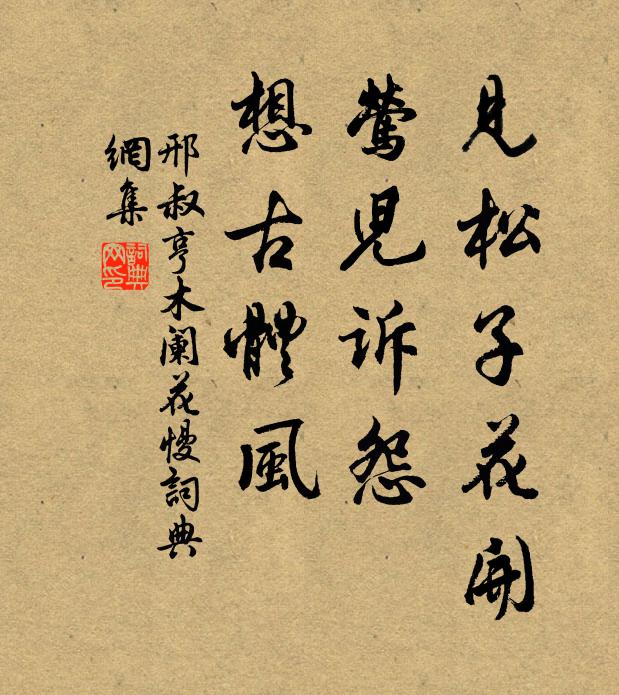 見松子花開
鶯児诉怨
想古體風
邢叔亨木阑花慢詞典
網集
詞典
网印